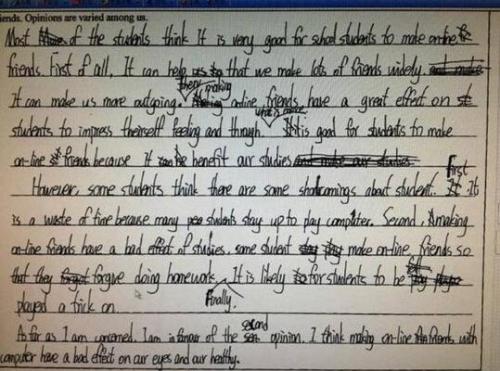 iends. Opinions are varied among us.
Most of the students think It is very good for school students to make online
friends. First of all, It can help that we make lots of friends widely
It can make us more outgoing. making online friends have a great effect on
students to impress theirself feeling and though. what's more It is good for students to make
on-line friends because It can benefit our studies
However, some students think there are some shortcomings about student. First It
is a waste of time because many students stay up to play computer. Second. making
on-line friends have a bad effect of studies. some student make on-line friends so
that they forgive doing homework. Finally. It is likely for students to be
played a trick on.
As far as I am concerned. I am in favour of the second opinion. I think making on-line friends with
computer have a bad effect on our eyes and our healthy.